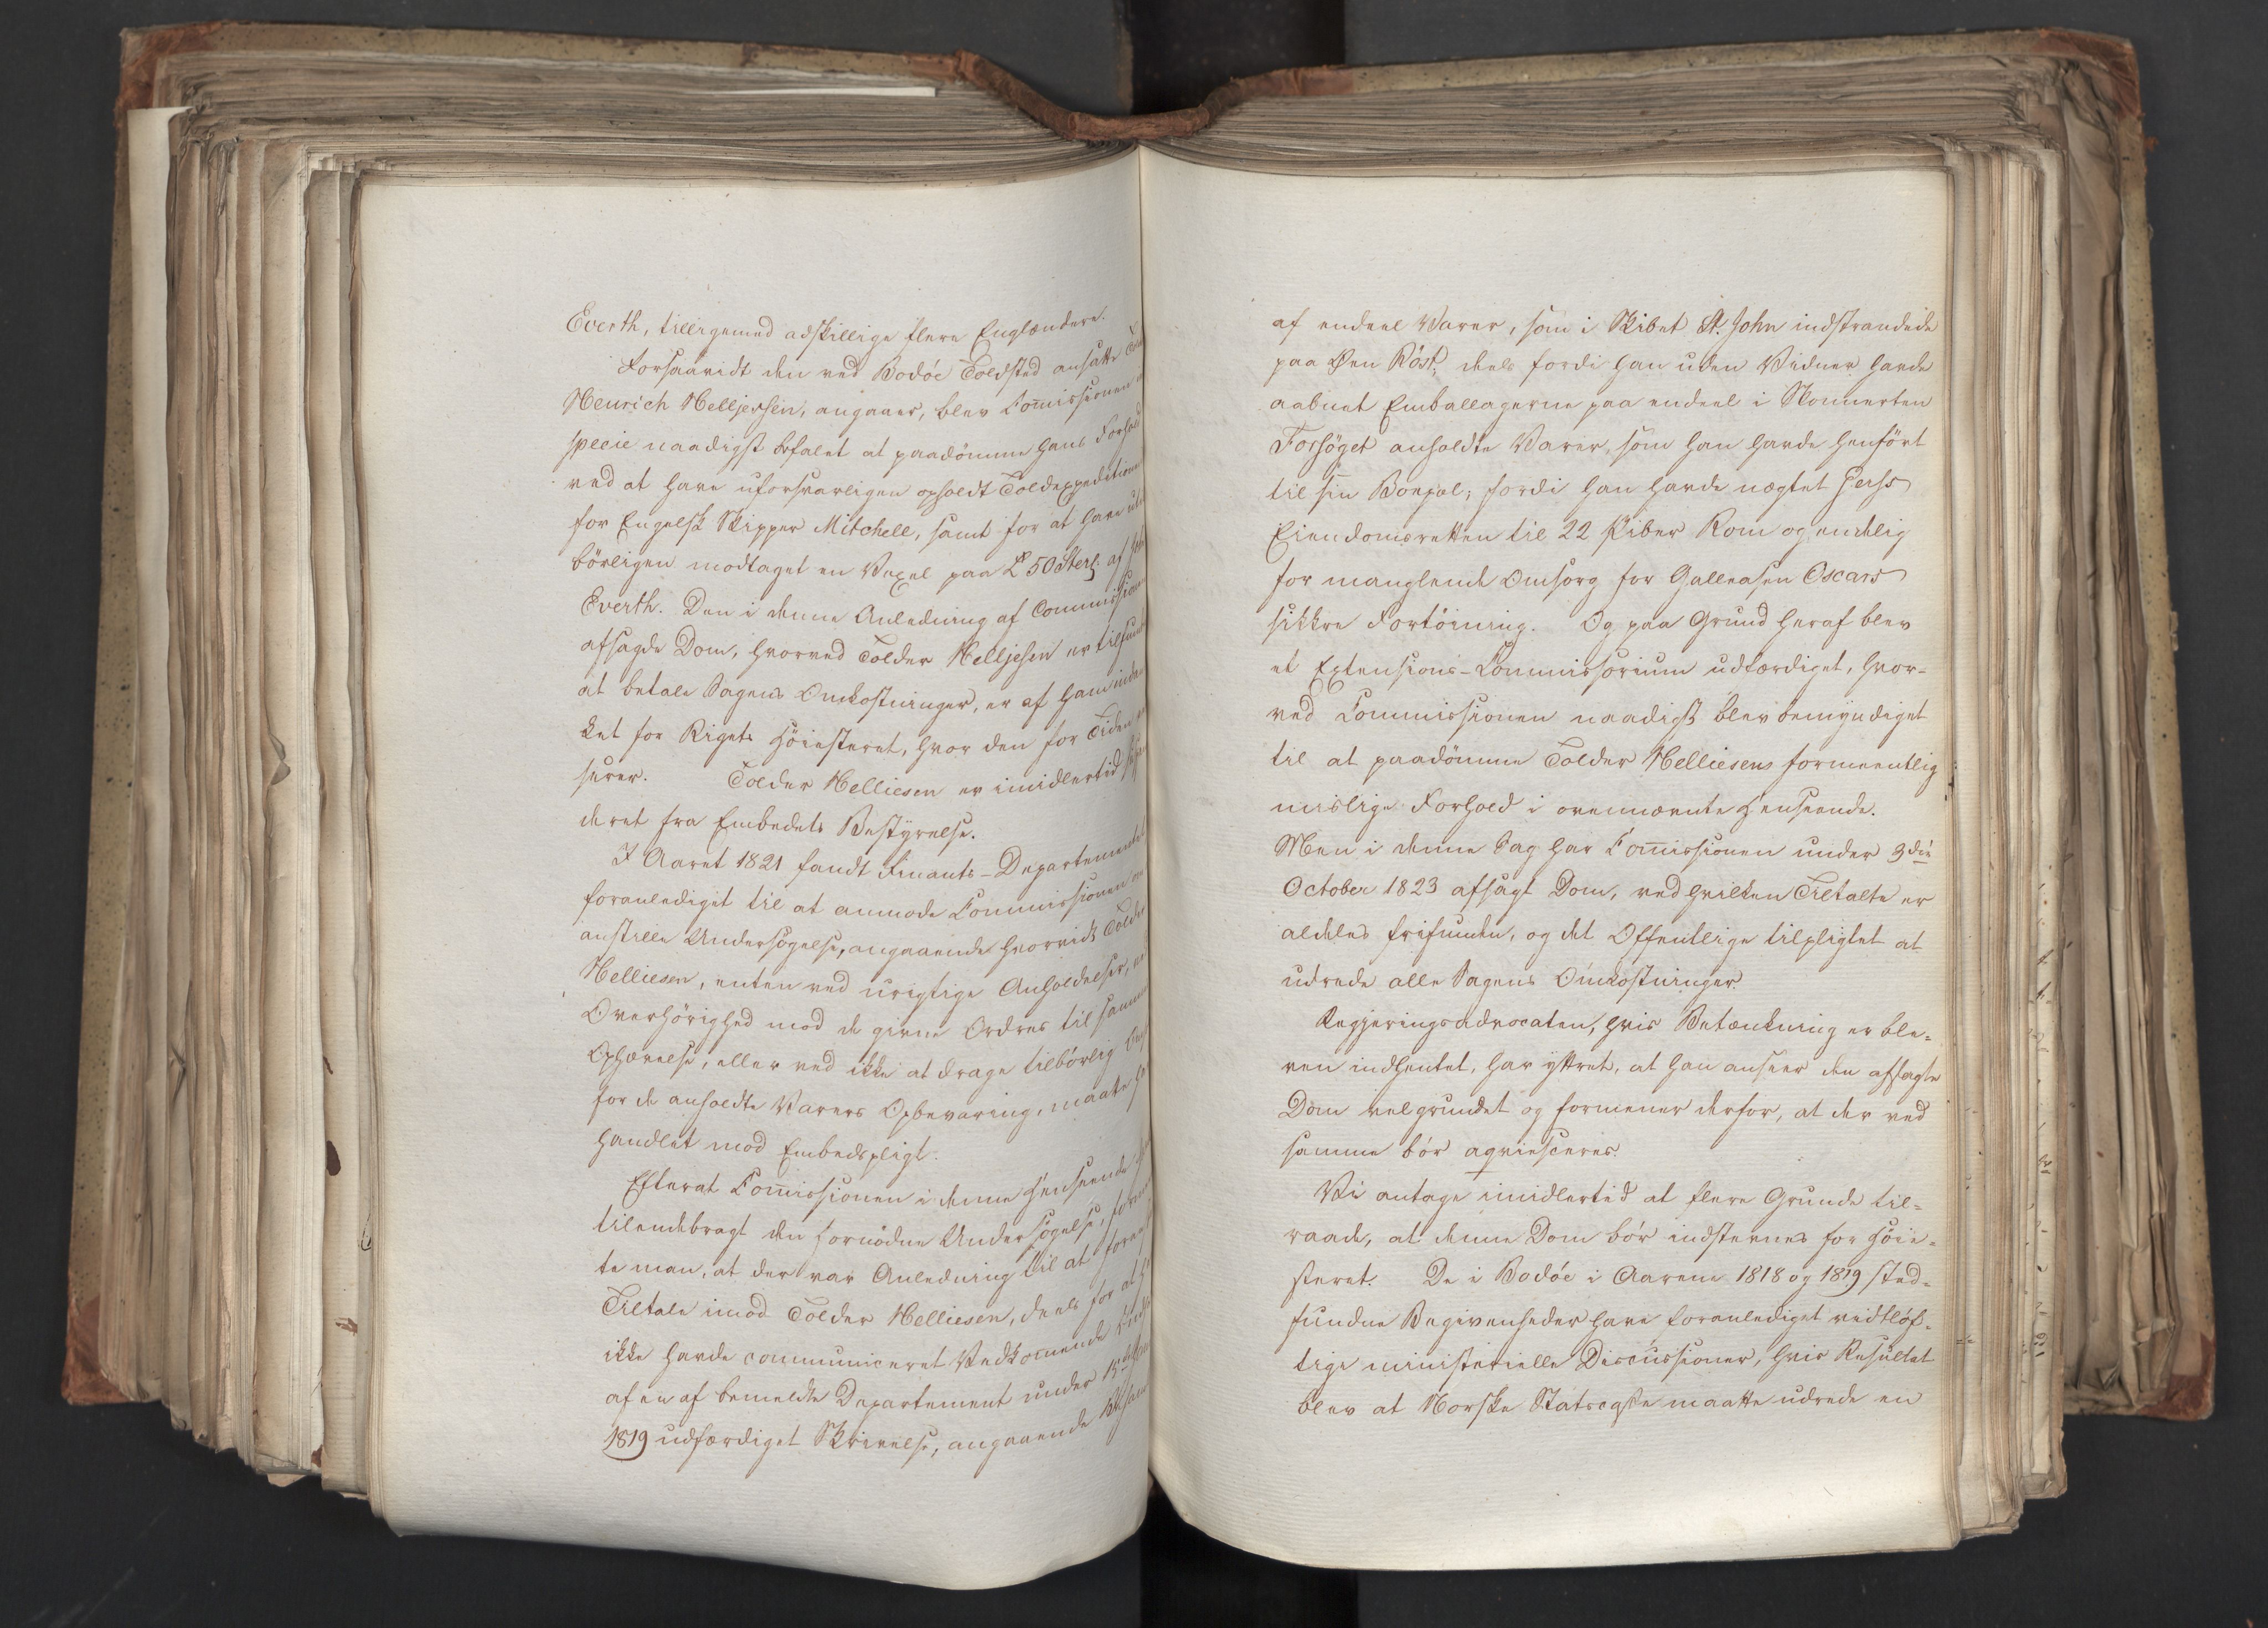 Everth, tilligemed adskillige flere Englændere.
Forsaavidt den ved Bodöe Toldsted ansatte
Henrich Helljessen, angaaer, blev Com̄issionen
specie naadigst befalet at paadömme hans Forhold
ved at have uforsvarligen opholdt Toldexpeditionen
for Engelsk Skipper Mitchell, samt for at have
börligen modtaget en Vexel paa £ 50 Sterl. af John
Everth. Den i denne Anledning af Commissionen
afsagde Dom, hvorved Tolder Helljesen er tilfunden
at betale Sagens Omkostninger, er af ham
ket for Rigets Höiesteret, hvor den for Tiden
serer. Tolder Helliesen er imidlertid
deret fra Embedets Bestyrelse.
I Aaret 1821 fandt Finants-Departementet
foranlediget til at anmode Commissionen om
anstille Undersögelse, angaaende hvorvidt Tolder
Helliesen, enten ved urigtige Anholdelser, ved
Overhörighed mod de givne Ordres til sammes
Ophævelse, eller ved ikke at drage tilbörlig
for de anholdte Varers Opbevaring, maatte have
handlet mod Embedspligt.
Efterat Com̄issionen i denne Henseende
tilendebragt den fornödne Undersögelse, formeen
te man, at der var Anledning til at
Tiltale imod Tolder Helliesen, deels for at han
ikke havde communiceret Vedkom̄ende
af en af bemeldte Departement under 15de
1819 udfærdiget Skrivelse, angaaende
af endeel Varer, som i Skibet St. John indstrandede
paa Öen Röst, deels fordi han uden Vidner havde
aabnet Emballagerne paa endeel i Skonnerten
Forsöget anholdte Varer, som han havde henfört
til sin Boepæl; fordi han havde nægtet Jerss
Eiendomsretten til 22 Piber Rom og endelig
for manglende Omsorg for Galleasen Oscars
sikkre Fortöining. Og paa Grund heraf blev
et Extensions-Commissorium udfærdiget, hvor-
ved Commissionen naadigst blev bemyndiget
til at paadömme Tolder Helliesens formeentlig
mislige Forhold i ovennævnte Henseende.
Men i denne Sag har Com̄issionen under 3die
October 1823 afsagt Dom, ved hvilken Tiltalte er
aldeles frifunden, og det Offentlige tilpligtet at
udrede alle Sagens Omkostninger.
Regjeringsadvocaten, hvis Betænkning er ble-
ven indhentet, har yttret, at han anseer den afsagte
Dom velgrundet og formener derfor, at der ved
samme bör aqviesceres.
Vi antage imidlertid at flere Grunde til-
raade, at denne Dom bör indstevnes for Höie-
steret. De i Bodöe i Aarene 1818 og 1819 sted-
fundne Begivenheder have foranlediget vidtlöf-
tige ministerielle Discussioner, hvis Resultat
blev at Norske Statscasse maatte udrede en